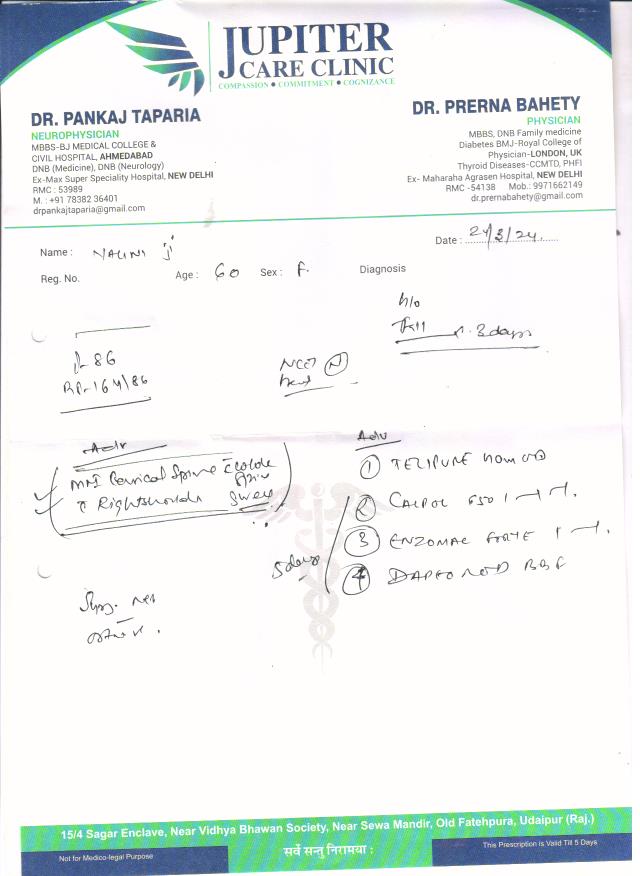 JUPITER
CARE CLINIC
COMPASSION • COMMITMENT • COGNIZANCE
DR. PANKAJ TAPARIA
NEUROPHYSICIAN
MBBS-BJ MEDICAL COLLEGE &
CIVIL HOSPITAL, AHMEDABAD
DNB (Medicine), DNB (Neurology)
Ex-Max Super Speciality Hospital, NEW DELHI
RMC : 53989
M. : +91 78382 36401
drpankajtaparia@gmail.com
DR. PRERNA BAHETY
PHYSICIAN
MBBS, DNB Family medicine
Diabetes BMJ-Royal College of
Physician-LONDON, UK
Thyroid Diseases-CCMTD, PHFI
Ex- Maharaha Agrasen Hospital, NEW DELHI
RMC -54138 Mob.: 9971662149
dr.prernabahety@gmail.com
Date : 24/3/24
Name : NALINI Ji
Reg. No. Age : 60 Sex : F. Diagnosis
h/o
3 days
86
BP-164/86
NCCT
head
Adv
MRI Cervical Spine whole
Spine
Right shoulder
Adv
① TELIPURE 40m OD
② CALPOL 650 1
③ ENZOMAC FORTE 1
④
5 days
15/4 Sagar Enclave, Near Vidhya Bhawan Society, Near Sewa Mandir, Old Fatehpura, Udaipur (Raj.)
Not for Medico-legal Purpose
सर्वे सन्तु निरामया :
This Prescription is Valid Till 5 Days